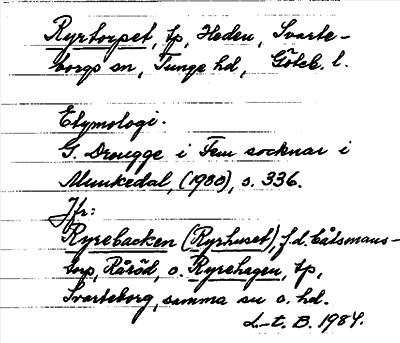 Ryrtorpet, tp, Heden, Svarte-
borgs sn, Tunge hd, Göteb. l.
Etymologi.
G. Drougge i Fem socknar i
Munkedal, (1980), s. 336.
Jfr:
Ryrebacken (Ryrhuset), f.d. båtsmans-
torp, Råröd, o. Ryrehagen, tp,
Svarteborg, samma sn o. hd.
L-t. B. 1984.